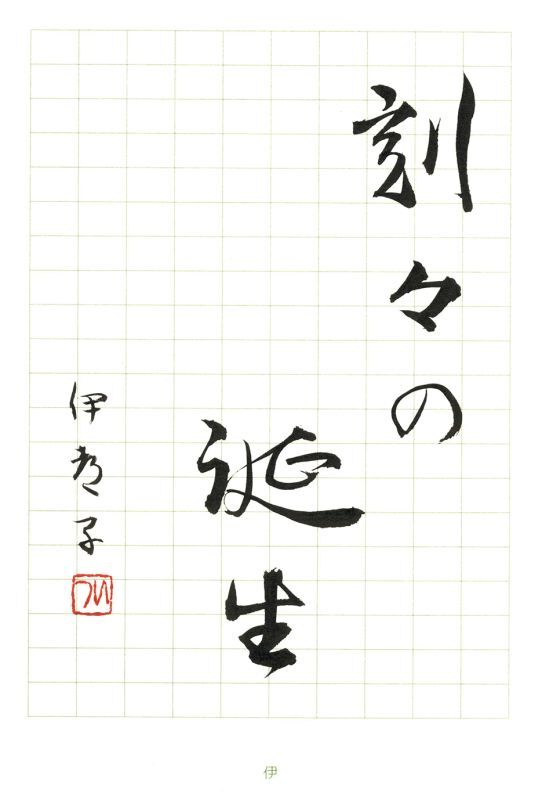 刻々の
誕生
伊都子
伊